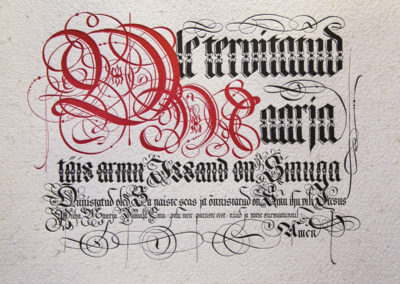 Ole tervitatud
Maarja
täis armu Issand on Sinuga
Õnnistatud oled Sa naiste seas ja õnnistatud on Sinu ihu vili Jeesus
Püha Maarja Jumala Ema palu meie patuste eest nüüd ja meie surmatunnil
Amen